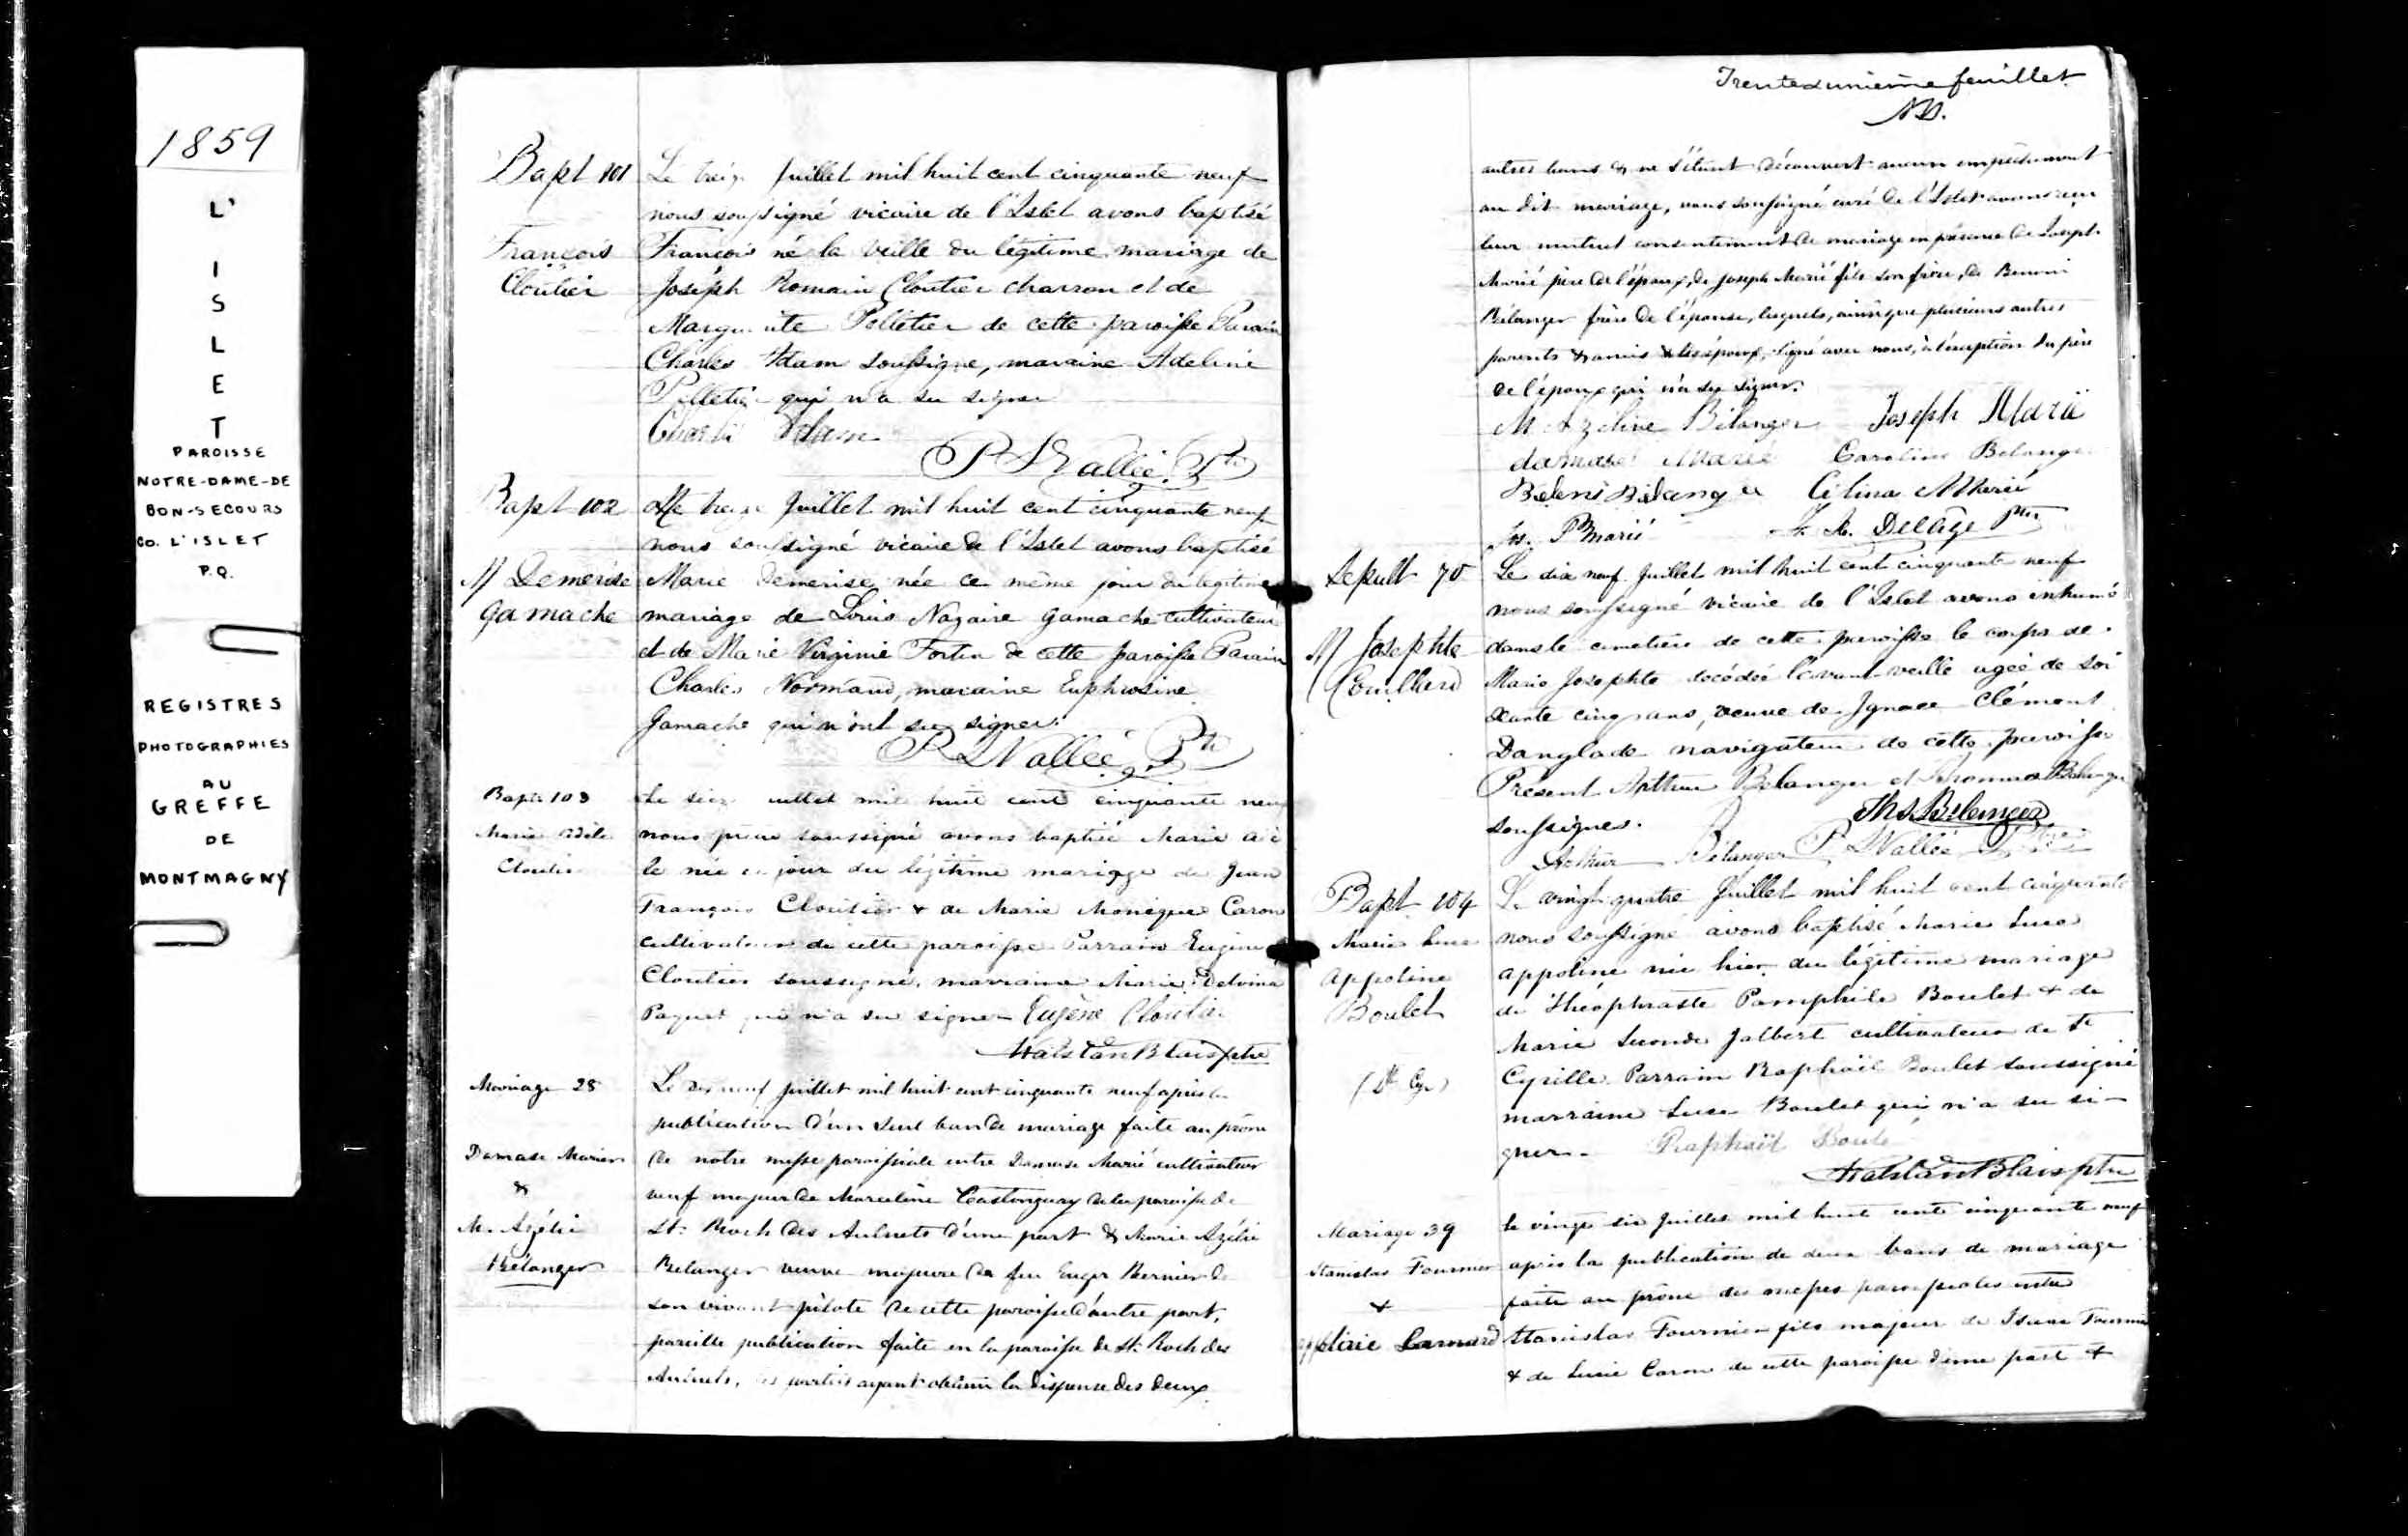 1859
L'
I
S
L
E
T
PAROISSE
NOTRE-DAME-DE
BON-SECOURS
CO. L'ISLET
P.Q.
REGISTRES
PHOTOGRAPHIES
AU
GREFFE
DE
MONTMAGNY
Bapt 101
François
Cloutier
Le treize Juillet mil huit cent cinquante neuf
nous soussigné vicaire de l'Islet avons baptisé
François né la veille du légitime mariage de
Joseph Romain Cloutier charron et de
Marguerite Pelletier de cette paroisse Parain
Charles Adam soussigné, maraine Adeline
Pelletier qui n'a su signer
Charles Adam
P L Vallée Ptre
Bapt 102
M Demerise
Gamache
Le treize Juillet mil huit cent cinquante neuf
nous soussigné vicaire de l'Islet avons baptisé
Marie Demerise née ce même jour du légitime
mariage de Louis Nazaire Gamache cultivateur
et de Marie Virginie Fortin de cette paroisse Parain
Charles Normand, maraine Euphrosine
Gamache qui n'ont su signer.
P L Vallée Ptre
Bapt 103
Marie Adèle
Cloutier
Le juillet mil huit cent cinquante neuf
nous soussigné avons baptisé Marie Adè
le née ce jour du légitime mariage de Jean
François Cloutier & de Marie Monique Caron
cultivateur de cette paroisse Parrain Eugène
Cloutier soussigné, marraine Marie Delvina
Paquet qui n'a su signer Eugène Cloutier
Nalstan Blais ptre
Mariage 28
Damase Marier
&
M. Azélie
Bélanger
Le dix neuf Juillet mil huit cent cinquante neuf après la
publication d'un seul ban de mariage faite au prône
de notre messe paroissiale entre Damase Marié cultivateur
veuf majeur de Marceline Castonguay de la paroisse de
St. Roch des Aulnets d'une part & Marie Azélie
Belanger veuve majeure de feu Bernier de
son vivant pilote de cette paroisse d'autre part,
pareille publication faite en la paroisse de St. Roch des
Aulnets, les parties ayant obtenu la dispense des deux
Trente unième feuillet
autres bans & ne s'étant découvert aucun empêchement
au dit mariage, nous soussigné curé de l'Islet avons reçu
leur mutuel consentement de mariage en présence de Joseph
Marié père de l'époux, de Joseph Marié fils son frère, de Benoni
Bélanger frère de l'épouse, lesquels, ainsi que plusieurs autres
parents & amis & les époux, signé avec nous, à l'exception du père
de l'époux qui n'a su signer.
M Azeline Bélanger Joseph Marié
damase Marié Caroline Belanger
Bélanger Célina Marié
Js. P Marié F. X. Delâge Ptre
Sepult 70
M Josephte
Couillard
Le dix neuf Juillet mil huit cent cinquante neuf
nous soussigné vicaire de l'Islet avons inhumé
dans le cimetière de cette paroisse le corps de
Marie Josephte décédée l'avant veille agée de soi
xante cinq ans, veuve de Ignace Clément
Danglade navigateur de cette paroisse
Présent Arthur Bélanger et Thomas Bélanger
soussignés. Ths. Bélanger
Arthur Bélanger P L Vallée Ptre
Bapt 104
Marie Luce
Appoline
Boulet
(St Cyr)
Le vingt quatre Juillet mil huit cent cinquante
nous soussigné avons baptisé Marie Luce
appoline née hier du légitime mariage
de Théophraste Pamphile Boulet & de
Marie Seconde Jalbert cultivateur de St
Cyrille Parrain Raphaël Boulet soussigné
marraine Luce Boulet qui n'a su si-
gner. Raphaël Boulé
Nalstan Blais ptre
Mariage 39
Stanislas Fournier
&
Bernard
Le vingt six juillet mil huit cent cinquante neuf
après la publication de deux bans de mariage
faite au prône des messes paroissiales entre
Stanislas Fournier fils majeur de Fournier
& de Lucie Caron de cette paroisse d'une part &